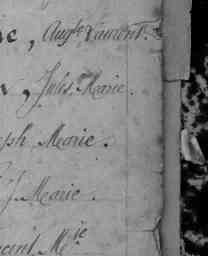 ic, Aug.te Vamont.
, Jules Marie.
eph Marie.
J. Marie.
ncent M.ie